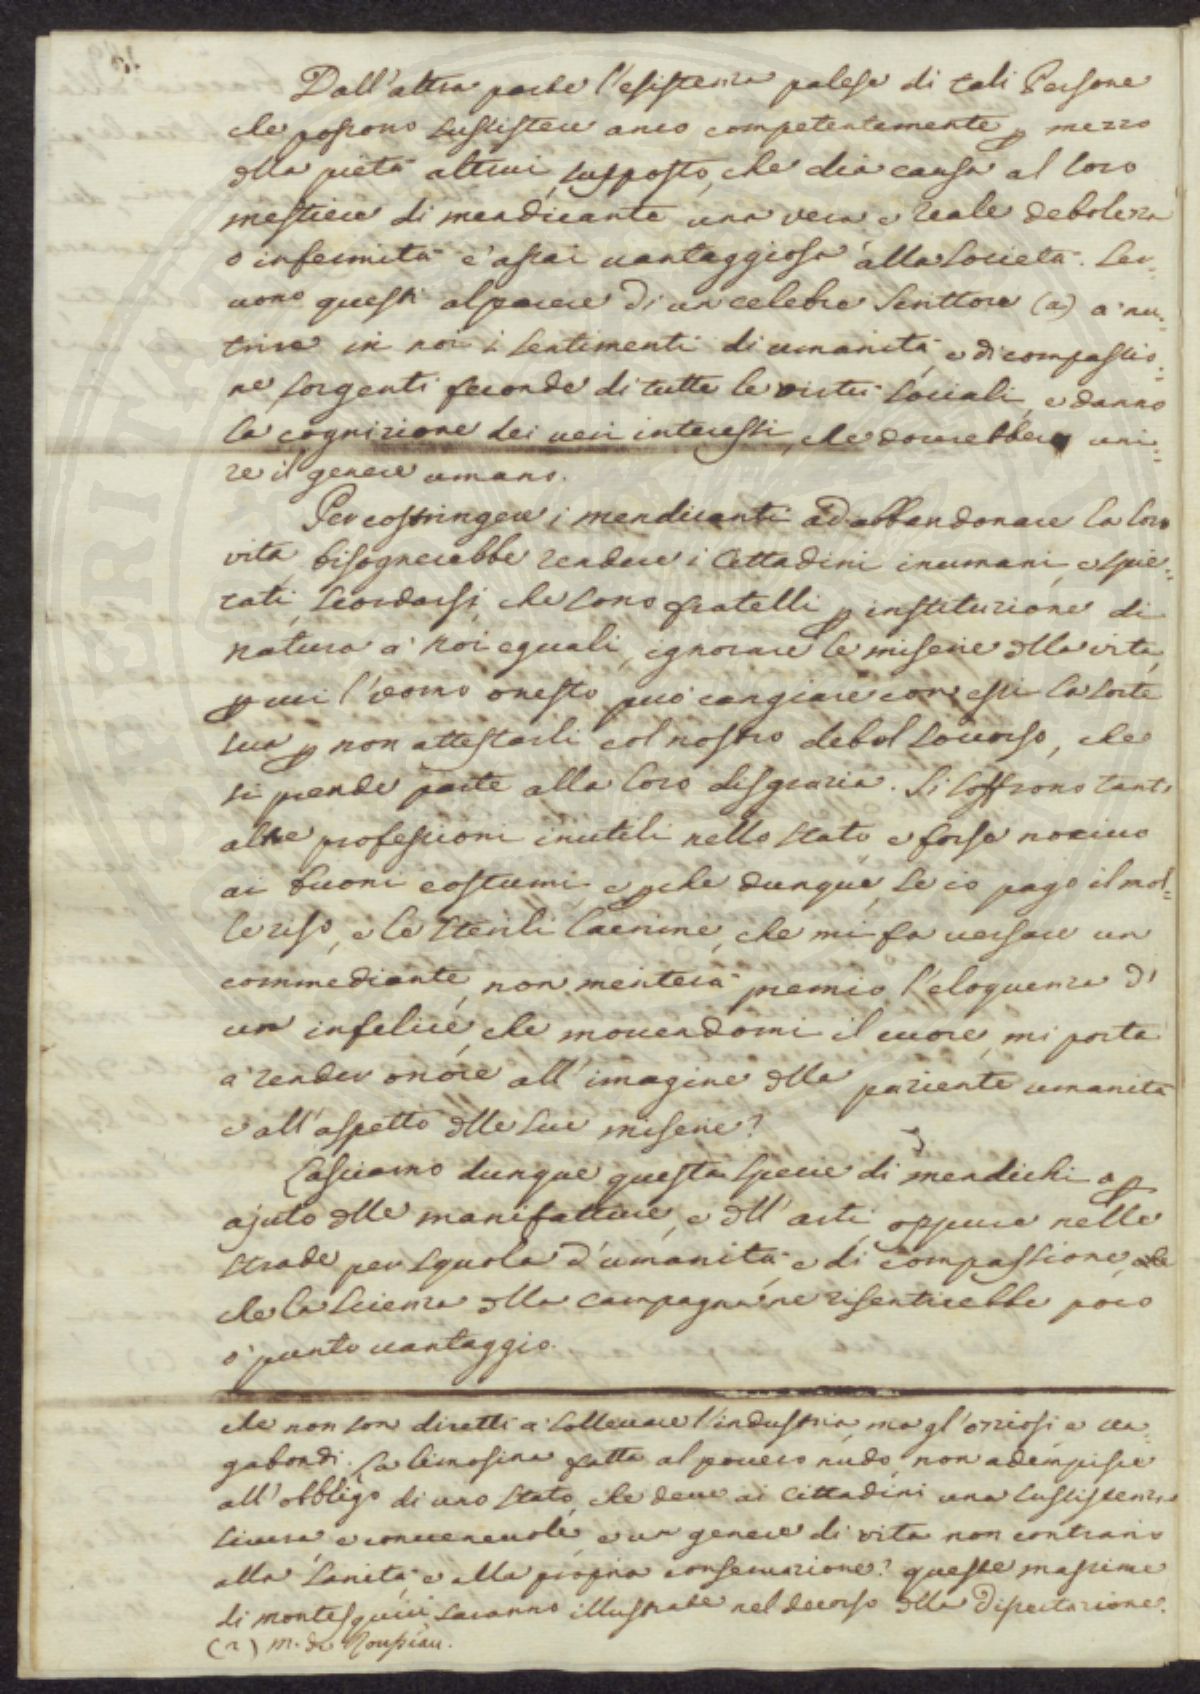 Dall'altra parte l'esistenza palese di tali Persone
che possono sussistere anco competentemente p mezzo
dlla pietà altrui, supposto, che dia causa al loro
mestiere di mendicante una vera e reale debolezza
o infermità è assai vantaggiosa alla Società. Ser-
vono questi al parere di un celebre Scrittore (a) a nu-
trire in noi i sentimenti di umanità, e di compassio-
ne sorgenti feconde di tutte le virtù sociali, e danno
la cognizione dei veri interessi, che dovrebbero uni-
re il genere umano.
Per costringere i mendicanti ad abbandonare la loro
vita bisognerebbe rendere i Cittadini inumani, e spie-
tati, scordarsi, che sono fratelli p instituzione di
natura a noi eguali, ignorare le miserie dlla vita,
p cui l'uomo onesto può cangiare con essi la sorte
sua p non attestarli col nostro debol soccorso, che
si prende parte alla loro disgrazia. Si soffrono tante
altre professioni inutili nello stato e forse nocive
ai buoni costumi, e pche dunque, se io pago il mol-
le riso, e le sterili lacrime, che mi fa versare un
commediante, non meriterà premio l'eloquenza di
un infelice, che movendomi il cuore, mi porta
a render onore all'imagine dlla paziente umanità
e all'aspetto dlle sue miserie?
Lasciamo dunque questa specie di mendichi o p
ajuto dlle manifatture, e dll'arti, oppure nelle
strade per squola d'umanità, e di compassione,
che la Scienza dlla campagna ne risentirebbe poco
o punto vantaggio.
che non son diretti a sollevare l'industria, ma gl'oziosi e va-
gabondi. La limosina fatta al povero nudo, non adempisce
all'obbligo di uno stato, che deve ai Cittadini una sussistenza
sicura e convenevole, e un genere di vita non contrario
alla sanità, e alla propria conservazione? queste massime
di montesquieu saranno illustrate nel decorso dlla Disertazione.
(a) m. de Roussiau.